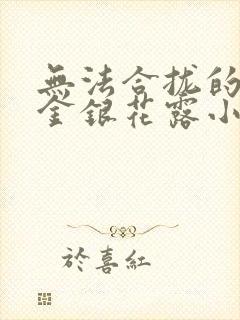 無法合拢的
金銀花露小
於喜紅